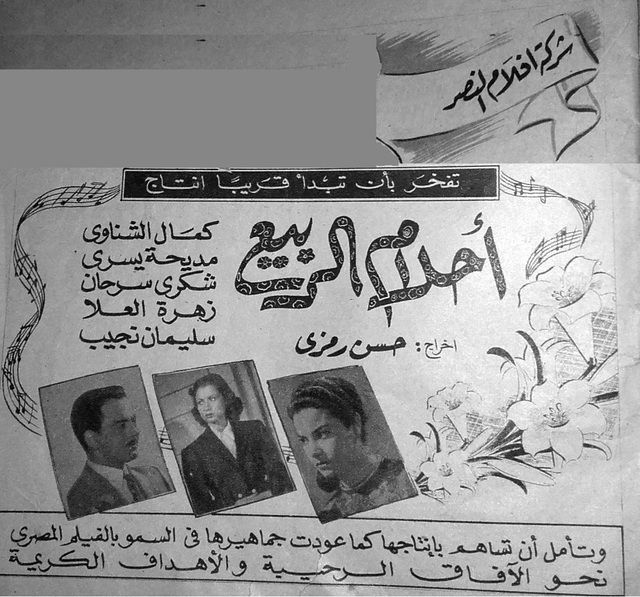 شركة افلام النصر
تفخر بأن تبدأ قريبًا انتاج
أحلام الربيع
كمال الشناوى
مديحة يسرى
شكرى سرحان
زهرة العلا
سليمان نجيب
اخراج: حسن رمزى
وتأمل أن تساهم بإنتاجها كما عودت جماهيرها فى السمو بالفيلم المصرى
نحو الآفاق الرحيبة والأهداف الكريمة